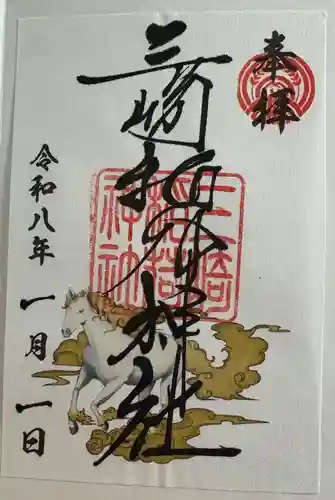 奉拝
三崎稲荷神社
三崎
稲荷
神社
令和八年
一月
一日